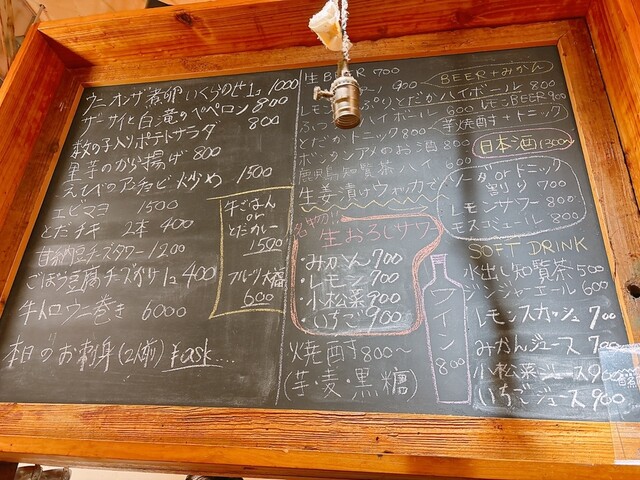 ウニオンザ煮卵いくらのせ1コ 1000
ザーサイと白滝のペペロン 800
数の子入りポテトサラダ 800
里芋のから揚げ 800
えびのアンチョビ炒め 1500
エビマヨ 1500
とだチキ 2本 400
チーズタワー 1200
ごぼう豆腐チーズがけ1コ 400
牛トロウニ巻き 6000
本日のお刺身(2人前) ¥ask....
牛ごはん
or
とだカレー
1500
フルーツ大福
600
生BEER 700
900
とだかハイボール 800
ハイボール 600
とだかトニック 800
ボンタンアメのお酒 800
鹿児島知覧茶ハイ 600
生姜漬けウォッカで
BEER+みかん
レモンBEER 900
芋焼酎+トニック
日本酒 1300
ソーダorトニック
割り 700
レモンサワー 800
モスコミュール 800
名物!!
生おろしサワー
・みかん 700
・レモン 700
・小松菜 900
・いちご 900
焼酎 800〜
(芋・麦・黒糖)
ワイン
800
SOFT DRINK
水出し知覧茶 500
ジンジャーエール 600
レモンスカッシュ 700
みかんジュース 700
小松菜ジュース 900
いちごジュース 900